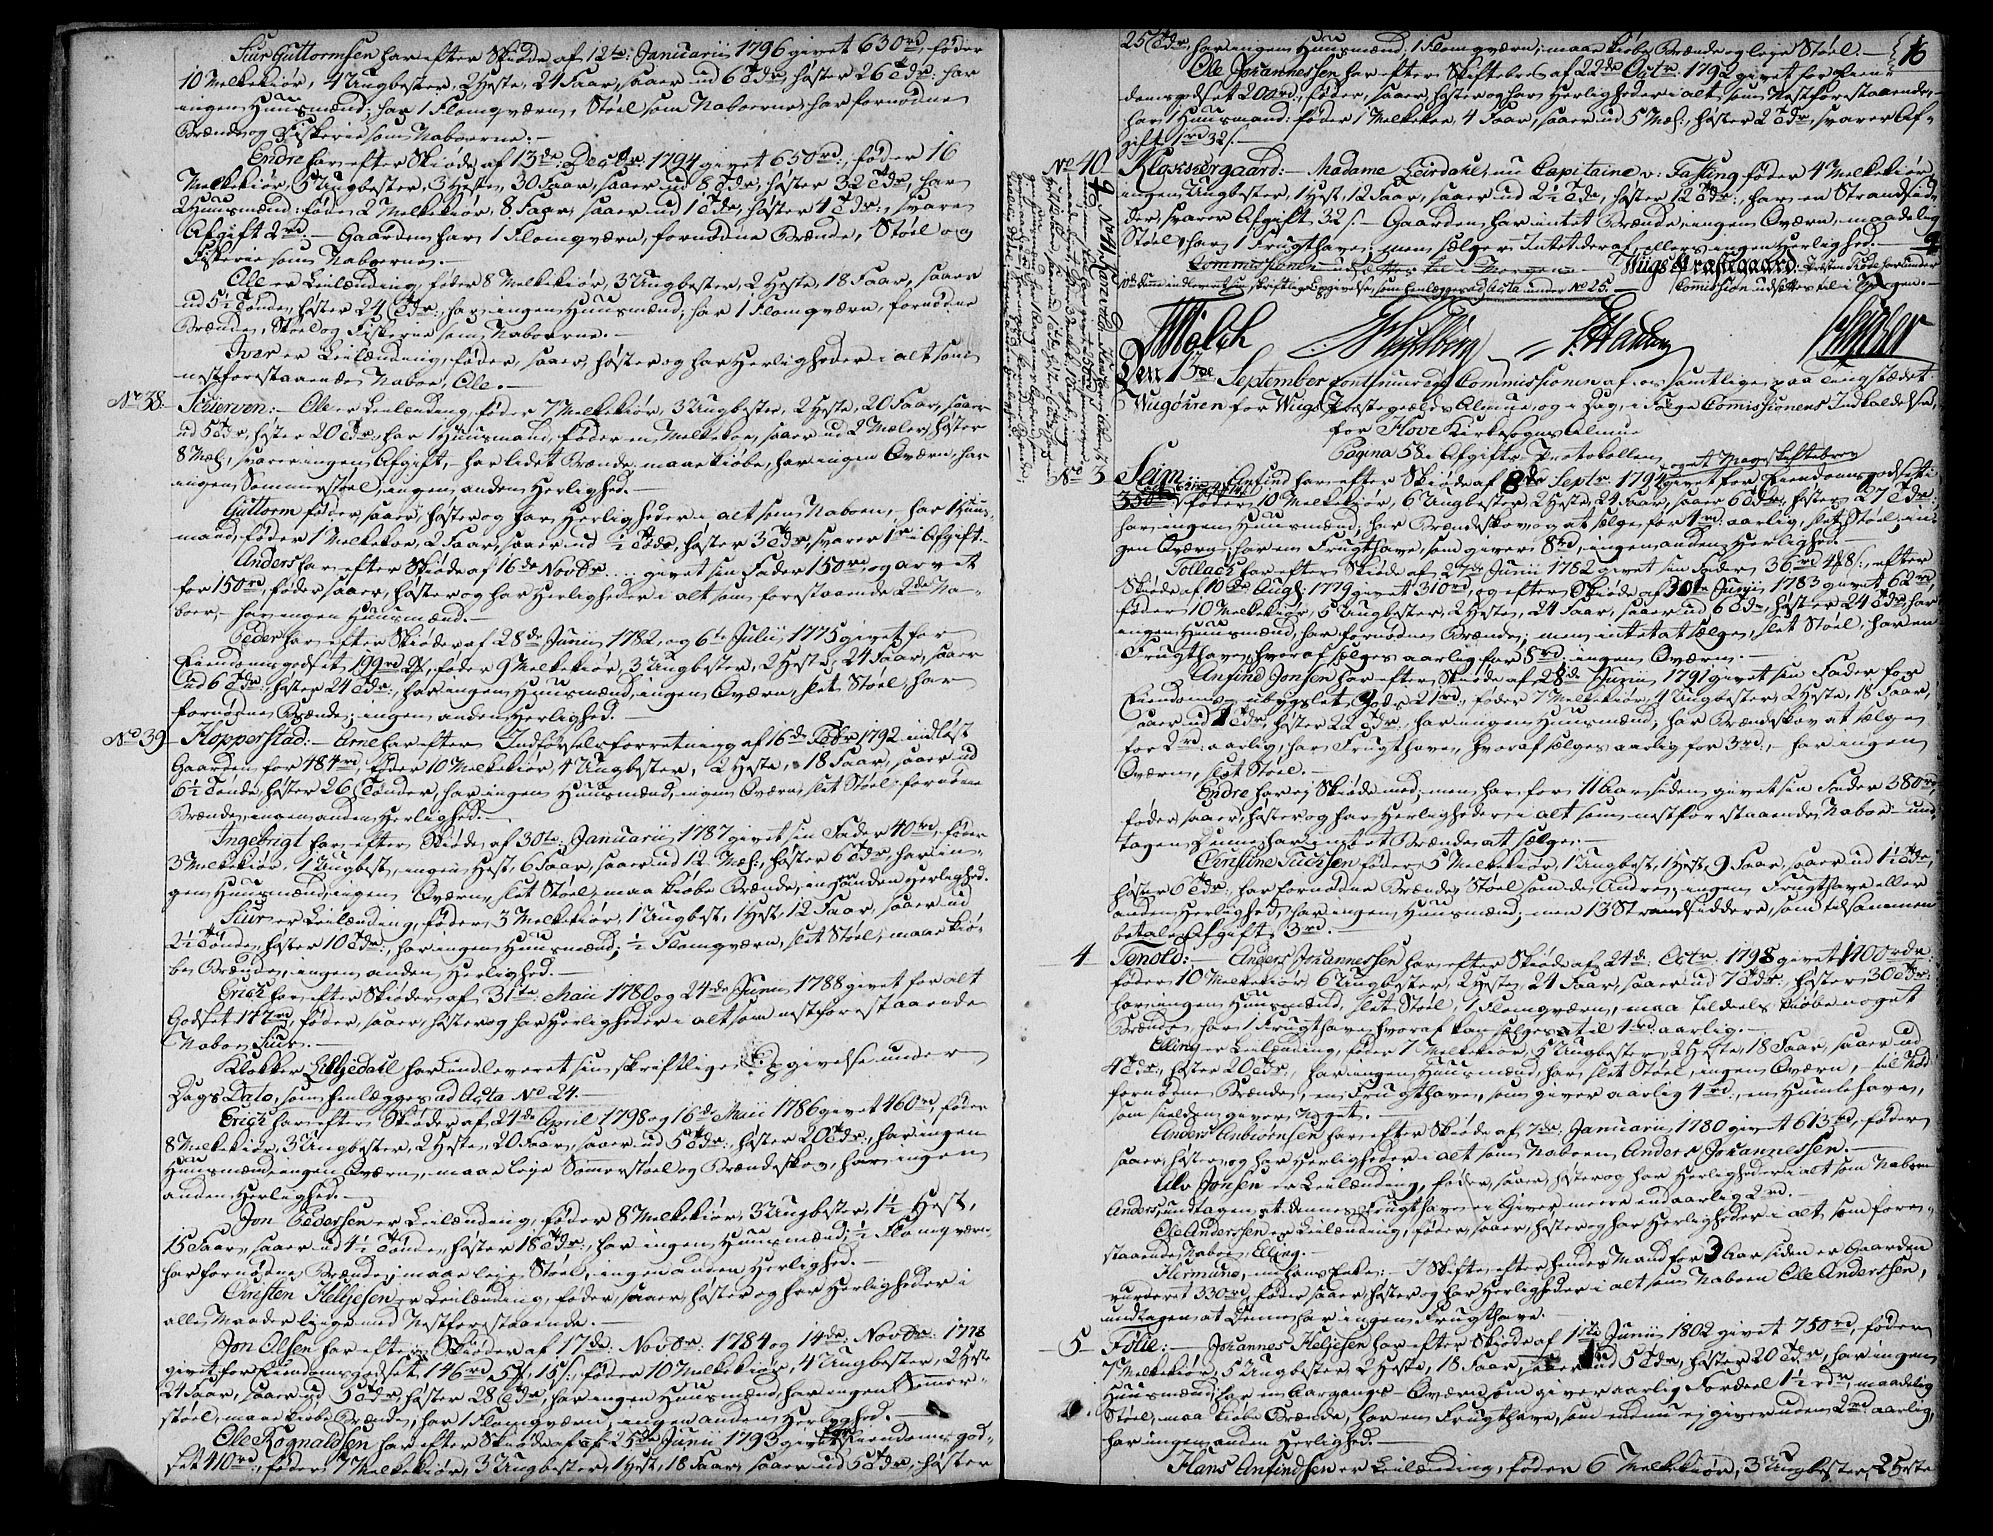 Siur Guttormsen har efter Skiøde af 12te Januarii 1796 givet 630rd, føder
10 Melkekiør, 4 Ungbester, 2 Heste, 24 Faar, saaer ud 6 Tdr, høster 26 Tdr: har
ingen Huusmænd; har 1 Flomqværn, Støel som Naboerne, har fornødne
Brænde og Fiskerie som Naboerne.
Endre har efter Skiøde af 13de Decbr 1794 givet 650rd, føder 16
Melkekiør, 5 Ungbester, 3 Heste, 30 Faar, saaer ud 8 Tdr, høster 32 Tdr, har
2 Huusmænd: føder 2 Melkekiør, 8 Faar, saaer ud 1 Tde, høster 4 Tdr, svarer
Afgift 2rd. Gaarden har 1 Flomqværn, fornødne Brænde, Støel og
Fiskerie som Naboerne.
Ole er Leilænding, føder 8 Melkekiør, 3 Ungbester, 2 Heste, 18 Faar, saaer
ud 5½ Tønde, høster 24 Tdr, har ingen Huusmænd, har 1 Flomqværn, fornødne
Brænde, Støel og Fiskerie som Naboerne.
Iver er Leilænding, føder, saaer, høster og har Herligheder i alt som
nestforstaaende Naboe, Ole.
No 38. Schierven: Ole er Leilænding, føder 7 Melkekiør, 3 Ungbester, 2 Heste, 20 Faar, saaer
ud 5 Tdr, høster 20 Tdr, har 1 Huusmand, føder en Melkekoe, saaer ud 2 Mæler, høster
8 Mæl, svarer ingen Afgift, har lidet Brænde, maae kiøbe, har ingen Qværn, har
ingen Sommerstøel, ingen anden Herlighed.
Guttorm føder, saaer, høster og har Herligheder i alt som Naboen, har 1 Huus-
mand, føder 1 Melkekoe, 2 Faar, saaer ud ½ Tde, høster 3 Tdr, svarer 1rd i Afgift.
Anders har efter Skiøde af 16de Novbr .... givet sin Fader 150rd, og arvet
for 150rd, føder, saaer, høster og har Herligheder i alt som forestaaende 2de Na-
boer, har ingen Huusmænd.
Peder har efter Skiøder af 28de Junii 1782, og 6te Julii 1775 givet for
Eiendomsgodset 199rd, føder 9 Melkekiør, 3 Ungbester, 2 Heste, 24 Faar, saaer
ud 6 Tdr: høster 24 Tdr, har ingen Huusmænd, ingen Qværn, slet Støel, har
fornødne Brænde, ingen anden Herlighed.
No 39 Hopperstad: Arne har efter Indførselsforretning af 16de Febr 1792 indløst
Gaarden for 484rd, føder 10 Melkekiør, 4 Ungbester, 2 Heste, 18 Faar, saaer ud
6½ Tønde, høster 26 Tønder, har ingen Huusmænd, ingen Qværn, slet Støel, fornødne
Brænde, ingen anden Herlighed.
Ingebrigt har efter Skiøde af 30te Januarii 1787 givet sin Fader 40rd, føder
3 Melkekiør, 1 Ungbest, ingen Hest, 6 Faar, saaer ud 12 Mæl: høster 6 Tdr, har in-
gen Huusmænd, ingen Qværn, slet Støel, maa kiøbe Brænde, ingen anden Herlighed.
Siur er Leilænding, føder 3 Melkekiør, 1 Ungbest, 1 Hest, 12 Faar, saaer ud
2½ Tønde, høster 10 Tdr, har ingen Huusmænd; ½ Flomqværn, slet Støel, maae kiø-
be Brænde, ingen anden Herlighed.
Erich har efter Skiøder af 31te Maii 1780 og 24de Junii 1788 givet for alt
Godset 177rd, føder, saaer, høster og har Herligheder i alt som nestforestaaende
Naboe Siur.
Klokker Liljedahl har indleveret sin skriftlige Opgivelse under
Dags Dato, som henlægges ad Acta No 24.
Erich har efter Skiøder af 24de April 1798 og 16de Maii 1786 givet 460rd, føder
8 Melkekiør, 3 Ungbester, 2 Heste, 20 Faar, saaer ud 5 Tdr, høster 20 Tdr, har ingen
Huusmænd, ingen Qværn, maae leye Sommerstøel og Brændeskov, har ingen
anden Herlighed.
Jon Pedersen er Leilænding, føder 8 Melkekiør, 3 Ungbester, 1½ Hest,
15 Faar, saaer ud 4½ Tønde, høster 18 Tdr, har ingen Huusmænd, ½ Flomqværn
har fornøden Brænde, maae leie Støel, ingen anden Herlighed.
Christen Heljesen er Leilænding, føder, saaer, høster og har Herligheder i
alle Maader liige med Nestforestaaende.
Jon Olsen har efter Skiøder af 17de Novbr 1784 og 14de Novbr 1778
givet for Eiendomsgodset, 146rd 5 15s, føder 10 Melkekiør, 4 Ungbester, 2 Heste
24 Faar, saaer ud 5 Tdr, høster 28 Tdr, har ingen Huusmænd, har ingen Sommer-
støel, maae kiøbe Brænde, har 1 Flomqværn, ingen anden Herlighed.
Ole Rognaldsen har efter Skiøde af 25de Junii 1793 givet for Eiendomsgod-
set 410rd, føder 7 Melkekiør, 3 Ungbester, 1 Hest, 18 Faar, saaer ud 5 Tdr, høster
16
25 Tdr, har ingen Huusmænd, 1 Flomqværn, maae kiøbe Brænde og leje Støel.
Ole Johannessen har efter Skiftebrev af 22de Octr 1792 givet for Eien-
domsgodset 204rd, føder, saaer, høster og har Herligheder i alt som Nestforestaaende,
har 1 Huusmand: føder 1 Melkekoe, 4 Faar, saaer ud 5 Mæl, høster 2 Tdr, svarer Af-
gift 1rd 32s.
No 40 Klosstergaard: Madame Leirdahl, nu Capitaine v: Fasting føder 4 Melkekiør,
ingen Ungbester, 1 Hest, 12 Faar, saaer ud 2½ Tde, høster 12 Tdr, har en Strandsid-
der, svarer Afgift 32s. Gaarden har intet Brænde, ingen Qværn, maadelig
Støel, har 1 Frugthave, men sælger Intet deraf, ellers ingen Herlighed.
Commissionen udsættes til i Morgen. Wiigs Præstegaard:
indleveret sin skriftlige Opgivelse, som henlægges ad Acta under No 25. Commission udsættes til i Morgen.
Den 15de September continuerede Commissionen af os samtlige paa Tingstædet
Wugøhren for Wugs Præstegields Almue, og i Dag, i Følge Commissionens Indkaldelse,
for Hove Kirkesogns Almue
Pagina 58 i Afgifts Protokollen
No 3 Seim: Anfind har efter Skiøde af 8de Septr 1794 givet for Eiendomsgodset
350rd, føder 10 Melkekiør, 6 Ungbester, 2 Heste, 24 Faar, saaer 6 Tdr, høster 27 Tdr,
har ingen Huusmænd, har Brændeskov og at sælge for 4rd aarlig, slet Støel, in-
gen Qværn; har en Frugthave, som giver 8rd, ingen anden Herlighed.
Tollach har efter Skiøde af 27de Junii 1782 givet sin Fader 36rd 48s, efter
Skiøde af 10de Augs: 1779 givet 310rd, og efter Skiøde af 30te Junii 1783 givet 62rd
føder 10 Melkekiør, 5 Ungbester, 2 Heste, 24 Faar, saaer ud 6 Tdr, høster 24 Tdr, har
ingen Huusmænd, har fornødne Brænde; men intet at sælge, slet Støel, har en
Frugthave, hvoraf sælges aarlig for 8rd, ingen Qværn.
Anfind Jonsen har efter Skiøde af 28de Junii 1791 givet sin Fader for
Eiendom og ubygslet Gods 21rd, føder 7 Melkekiør, 4 Ungbester, 2 Heste, 18 Faar,
saaer ud Tdr, høster 22 Tdr, har ingen Huusmænd, har Brændeskov at sælge
for 2rd aarlig, har Frugthave, hvoraf sælges aarlig for 3rd, har ingen
Qværn, slet Støel.
Endre har ej Skiøde med; men har for 11 Aar siden givet sin Fader 380rd,
føder, saaer, høster og har Herligheder i alt som nestforstaaende Naboe und-
tagen Denne har intet Brænde at sælge.
Christine Fuhrsen føder 5 Melkekiør, 1 Ungbest, 1 Hest, 9 Faar, saaer ud 1½ Tde,
høster 6 Tdr, har fornødne Brænde, Støel som de Andre, ingen Frugthave eller
anden Herlighed, har ingen Huusmænd; men 13 Strandsiddere, som tilsammen
betaler Afgift 3rd.
4 Tenold: Anders Johannessen har efter Skiøde af 24de Octr 1798 givet 1400rdr
føder 10 Melkekiør, 6 Ungbester, 2 Heste, 24 Faar, saaer ud 7 Tdr, høster 30 Tdr
har ingen Huusmænd, slet Støel, 1 Flomqværn, maa tildeels kiøbe noget
Brænde, har 1 Frugthave, hvoraf kan sælges til 4rd aarlig.
Elling er Leilænding, føder 7 Melkekiør, 5 Ungbester, 2 Heste, 18 Faar, saaer ud
4 Tdr, høster 20 Tdr, har ingen Huusmænd, har slet Støel, ingen Qværn, til Nød
fornødne Brænde, en Frugthave, som giver aarlig 4rd, en Humlehave,
som sielden giver Noget.
Anders Anbiørnsen har efter Skiøde af 7de Januarii 1780 givet 613rd, føder
saaer, høster og har Herligheder i alt som Naboen Anders Johannessen.
Ulv Jonsen er Leilænding, føder, saaer, høster og har Herligheder i alt som Naboen
Anders, undtagen at dennes Frugthave ei Giver meere end aarlig 2rd.
Ole Anderssen er Leilænding, føder, saaer, høster og har Herligheder i alt som fore-
staaende Naboe, Elling.
Hermund, nu hans Enke: I Skifte efter hendes Mand for 3 Aar siden er Gaarden
vurderet 330rd, føder, saaer, høster og har Herligheder i alt som Naboen Ole Anderssen,
undtagen at Denne har ingen Frugthave.
5 Føllie: Johannes Heljesen har efter Skiøde af 1ste Junii 1802 givet 750rd, føder
7 Melkekiør, 5 Ungbester, 2 Heste, 18 Faar, saaer ud 5 Tdr, høster 20 Tdr, har ingen
Huusmænd, har en Aargangs Qværn som giver aarlig Fordeel 1½ rdr, maadelig
Støel, maa kiøbe Brænde, har en Frugthave, som endnu ej giver uden 2rd aarlig,
har ingen anden Herlighed.
Hans Anfindsen er Leilænding, føder 6 Melkekiør, 3 Ungbester, 2 Heste